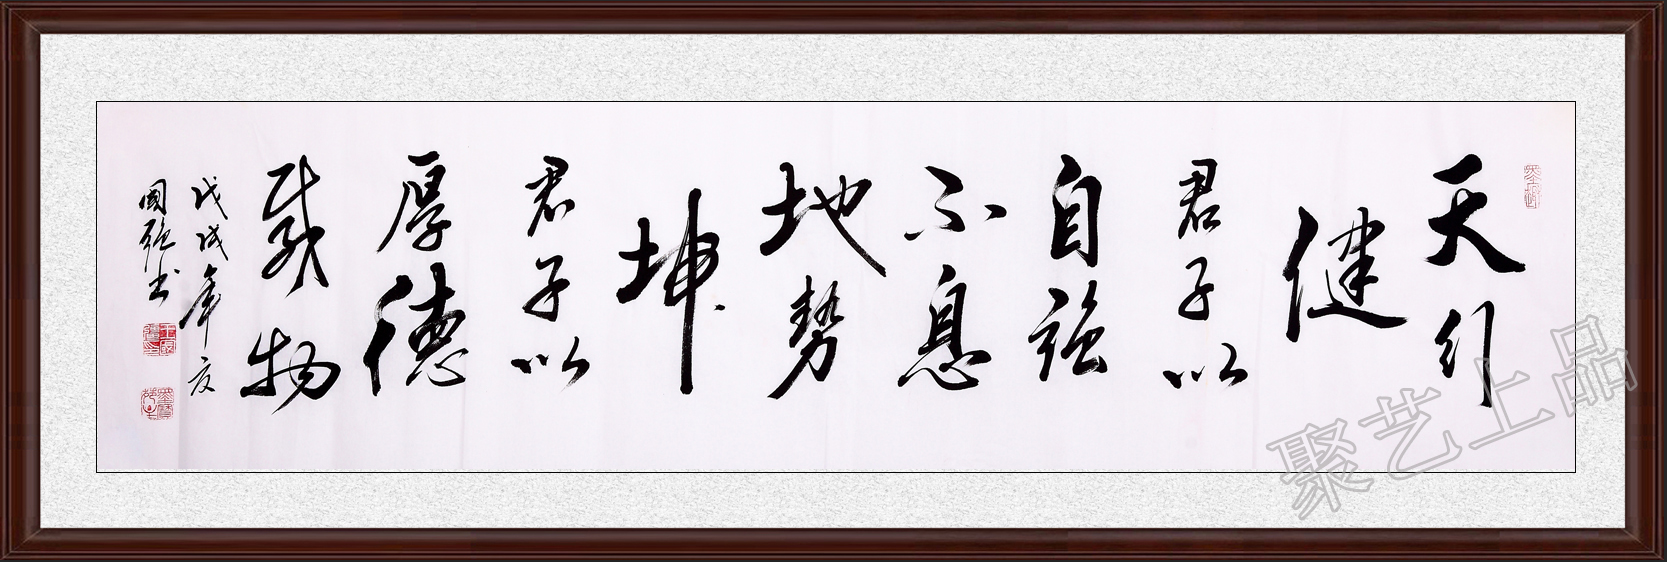 天行
健
君子以
自強
不息
地勢
坤
君子以
厚德
載物
戊戌年夏
國強书
聚艺上品